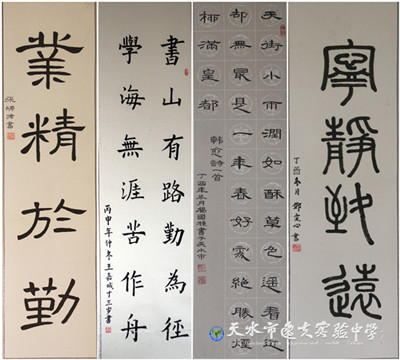 業精於勤
書山有路勤為徑
學海無涯苦作舟
丙申年仲冬王 城十三岁書
天街小雨潤如酥草色遥看近
却無最是一年春好處絕勝煙
柳滿皇都
韓愈詩一首
丁酉年冬月 國 書于天水市
寧靜致遠
丁酉冬月 鄧文心書
天水市逸夫实验中学